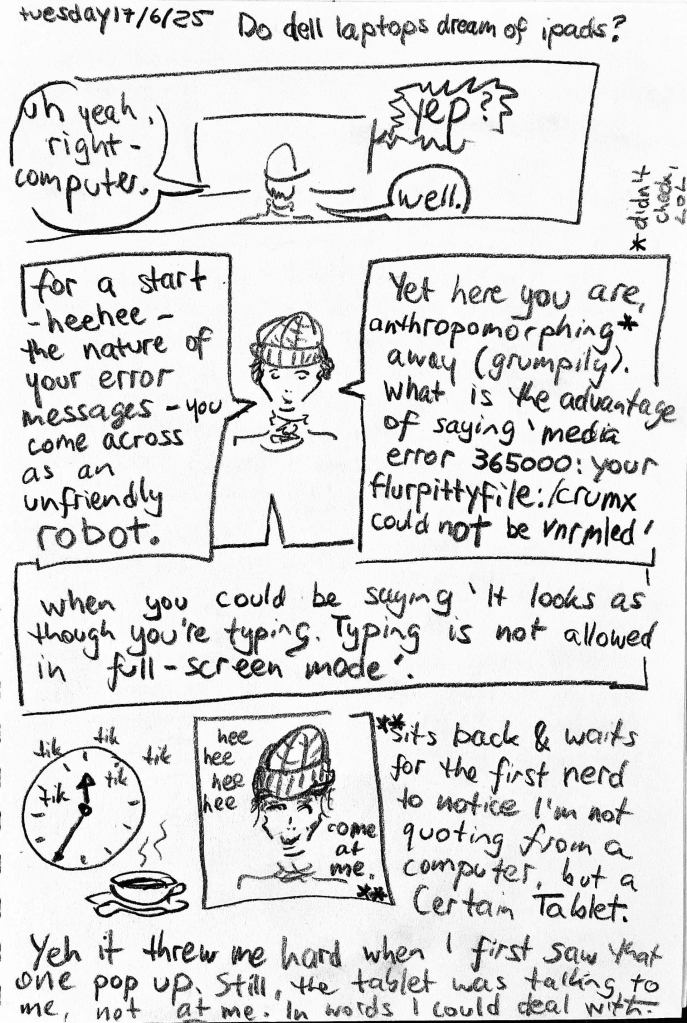 tuesday 17/6/25 Do dell laptops dream of ipads?
uh yeah,
right-
computer.
yep?
well.
*didn't
check,
LOL
for a start
-heehee-
the nature of
your error
messages - you
come across
as an
unfriendly
robot.
Yet here you are,
anthropomorphing*
away (grumpily).
What is the advantage
of saying 'media
error 365000: your
flurpittyfile:/crumx
could not be vnrmled'
when you could be saying 'It looks as
though you're typing. Typing is not allowed
in full-screen mode'.
tik
tik
tik
tik
tik
hee
hee
hee
hee
come
at
me.
**
**sits back & waits
for the first nerd
to notice I'm not
quoting from a
computer, but a
Certain Tablet.
Yeh it threw me hard when I first saw that
one pop up. Still, the tablet was talking to
me, not at me. In words I could deal with.